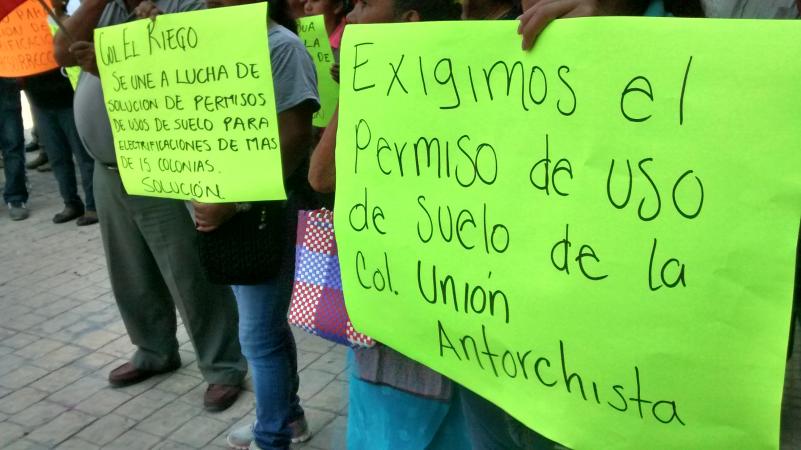 Col El Riego
SE UNE A LUCHA DE
SOLUCION DE PERMISOS
DE USOS DE SUELO PARA
ELECTRIFICACIONES DE MAS
DE 15 COLONIAS.
SOLUCIÓN
Exigimos el
Permiso de uso
de suelo de la
Col. Unión
Antorchista